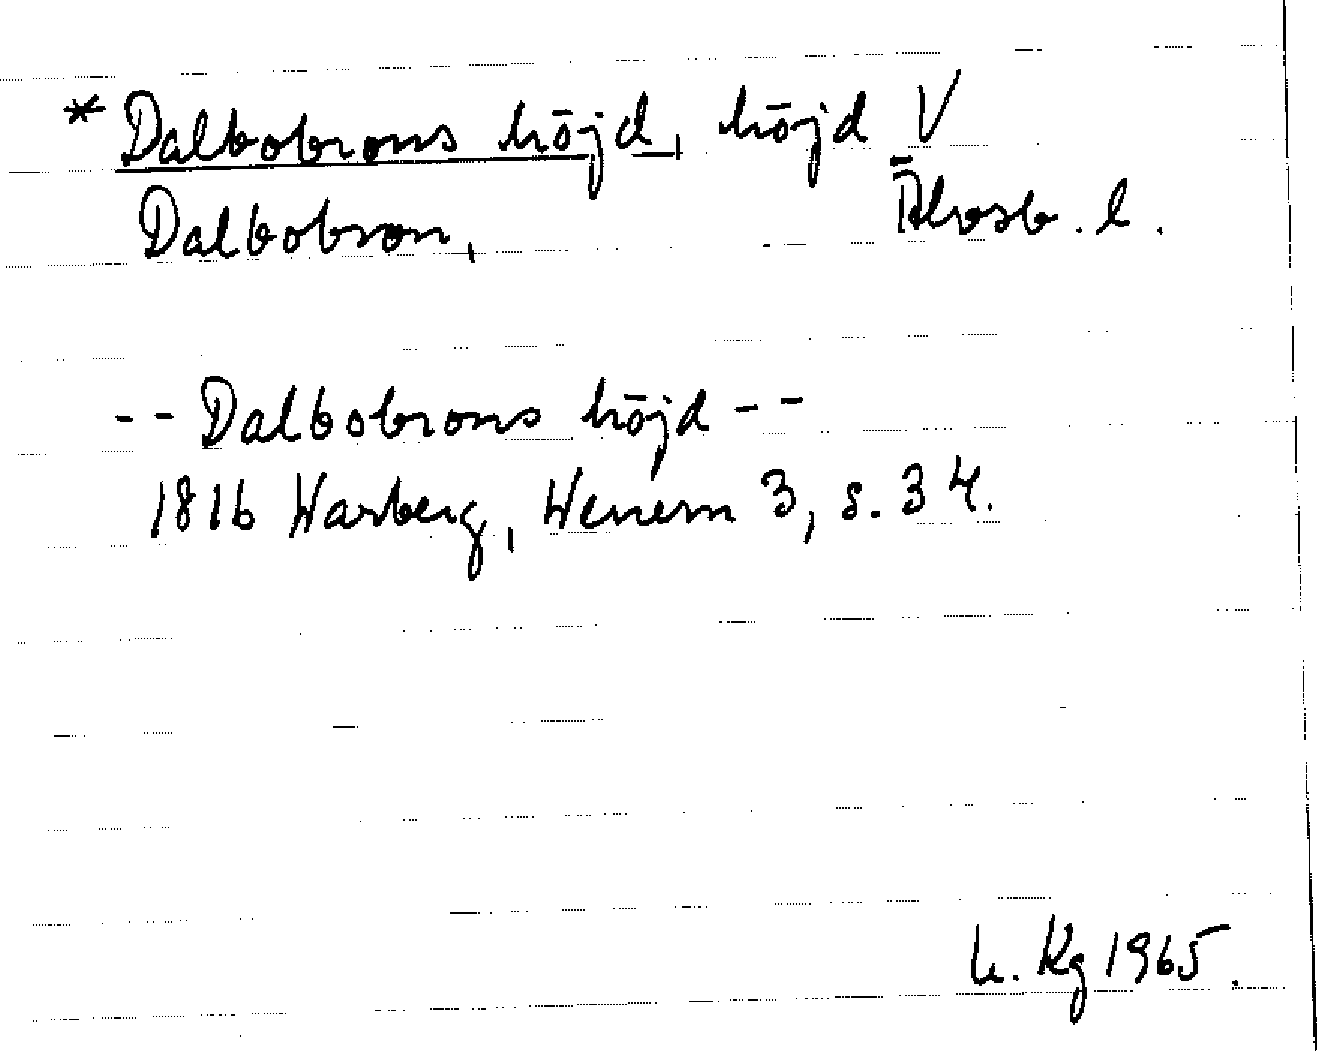 * Dalbobrons höjd, höjd V
Dalbobron, Älvsb. l.
-- Dalbobrons höjd --
1816 Warberg, Wenern 3, s. 34.
h. Kg 1965.